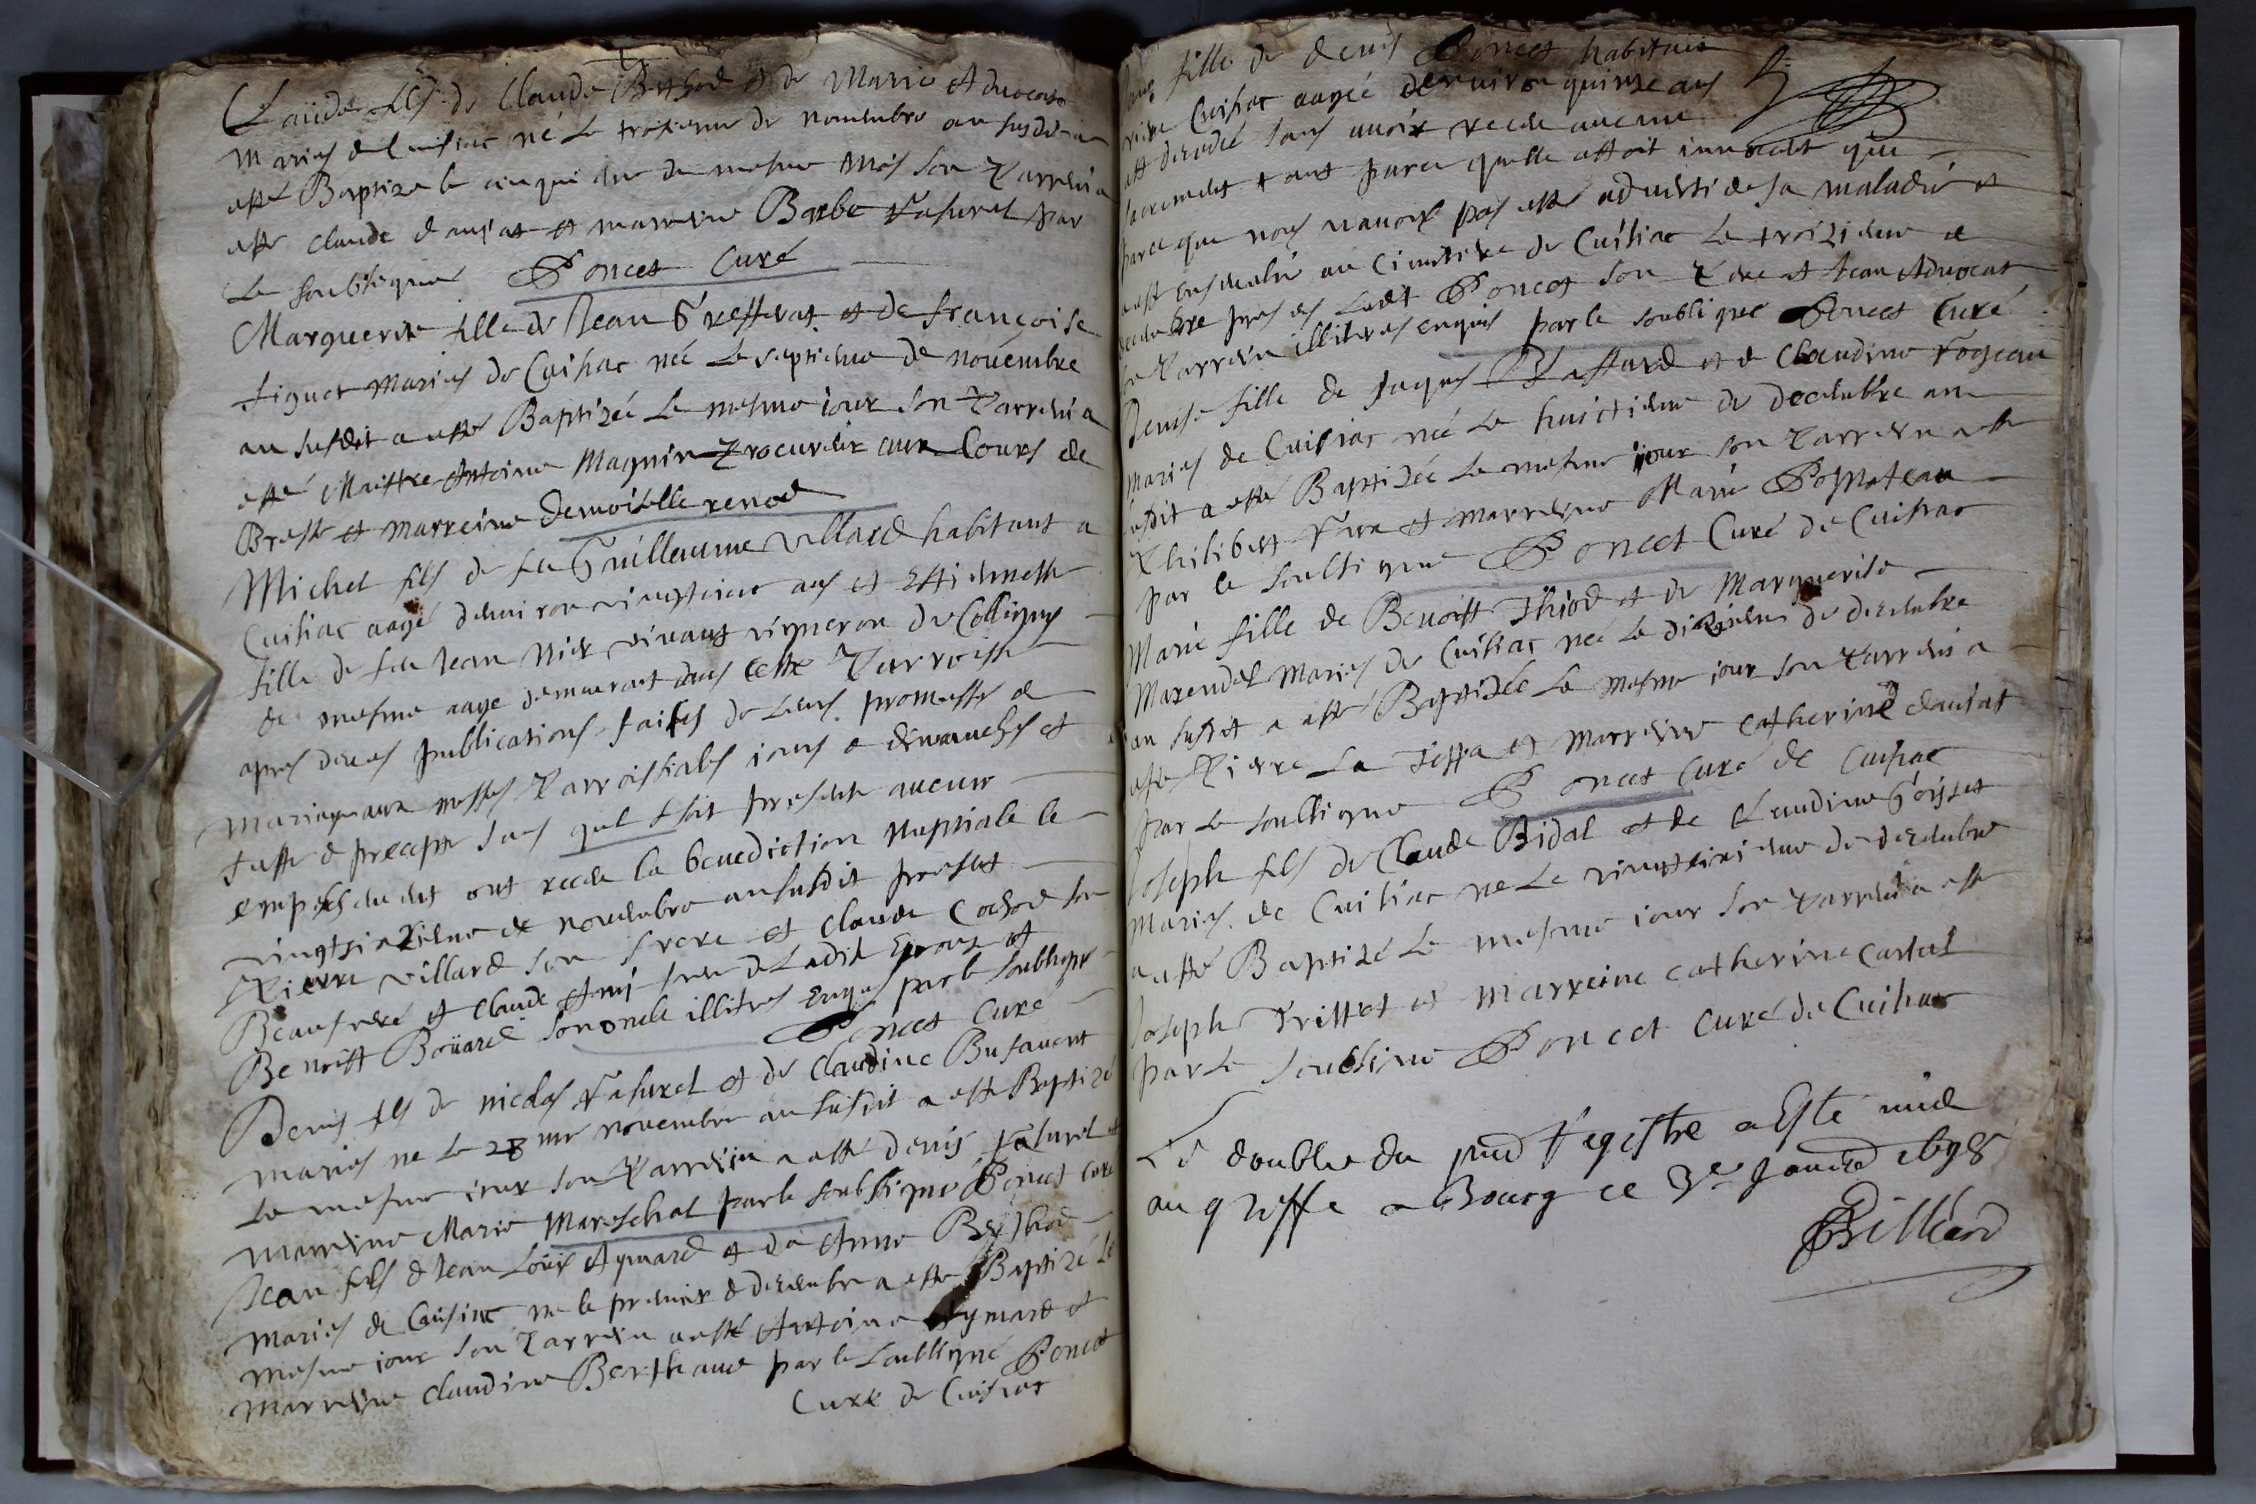 Claude fils de Claude Bethod et de Marie Advocate
Maries de Cuisiac né Le troisieme de novembre an susdit a
esté Baptize le cinquieme du mesme Mois son Parrein a
esté Claude danjat et marreine Barbe Vasurel par
Le soubsigné Poncet Curé
Marguerite fille de Jean Grefferat et de françoise
Tignet Maries de Cuisiac née Le septieme de novembre
an susdit a esté Baptizée Le mesme iour son Parrein a
esté Maistre Antoine Magnin Procureur aux Cours de
Bresse et marreine demoiselle renod
Michel fils de feu Guillaume Villard habitant a
Cuisiac aagé denviron vingtcinq ans et Estiennette
fille de feu Jean vivant vigneron de Colligny
de mesme aage demeurant dans cette Parroisse
apres deues publications faites de leurs promesses de
Mariage aux messes Parroissiales iours de dimanches et
feste de precepte sans quil se soit presenté aucun
empeschement ont receu la benediction Nuptiale le
vingtsixieme de novembre an susdit presents
Pierre Villard son frere et Claude Cochod son
Beaufrere et Claude frere de Ladite Epouse et
Benoist Boüard son oncle illitres enquis par le soubsigné
Poncet Curé
Denis fils de nicolas Vasurel et de Claudine Busavent
maries ne Le 28me novembre an susdit a esté Baptizé
Le mesme iour son Parrein a esté denis Vasurel et
marreine Marie Mareschal par le soubsigné Poncet curé
Jean fils de Jean Loüis Aymard et de Anne Bethod
maries de Cuisiac ne le premier de decembre a esté Baptizé Le
mesme iour son Parrein a esté Antoine Aymard et
Marreine Claudine Berthaud par le soubsigné Poncet
Curé de Cuisiac
fille de denis Poncet habitant
Cuisiac aagée denviron quinze ans
est decedée sans avoir receu aucun
sacrement tant parce quelle estoit innocente que
parce que nous navons pas esté adverti de sa maladie et
a esté ensevelie au Cimetiere de Cuisiac Le troizieme de
decembre presents Ledit Poncet son Pere et Jean Advocat
son Parrein illitres enquis par le soubsigné Poncet Curé
Denise fille de Jaques Plattard et de Claudine
Maries de Cuisiac née Le huictieme de decembre an
susdit a esté Baptizée Le mesme iour son Parrein a esté
Philibert et marreine Marie
par le soubsigné Poncet Curé de Cuisiac
Marie fille de Benoist Thiod et de Marguerite
Marendel Maries de Cuisiac née Le dixieme de decembre
an susdit a esté Baptizée Le mesme iour son Parrein a
esté Pierre La Teppa et Marreine Catherine danjat
par Le soubsigné Poncet Curé de Cuisiac
Joseph fils de Claude Bidal et de Claudine Goiset
Maries de Cuisiac ne Le vingtsixieme de decembre
a esté Baptizé Le mesme iour son Parrein a esté
Joseph et Marreine Catherine Cartal
par Le soubsigné Poncet Curé de Cuisiac
Le double du pnt Registre a Esté mis
au greffe a Bourg ce 3e Janvier 1698
Billiard